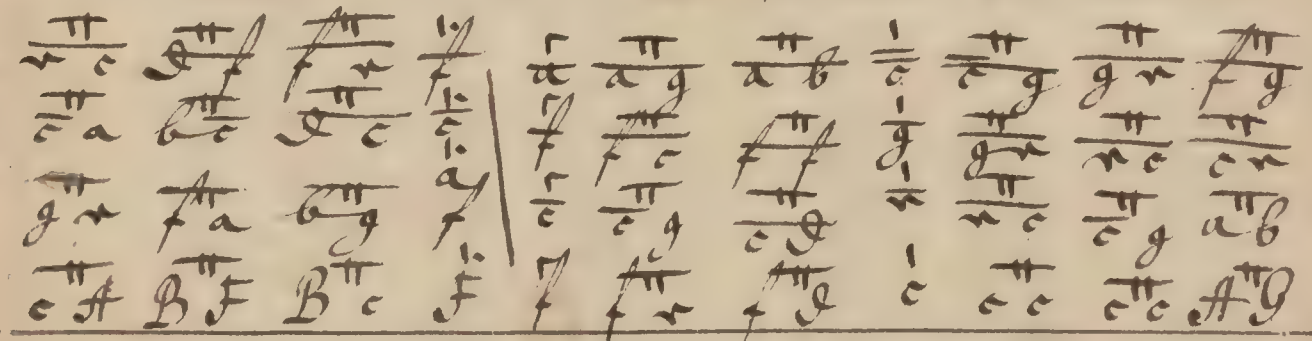 e c d f f e f | a a g a b c c g g e f g
c a b c d c c f f c f f g g e e c c e
g e f a b g a f c c g c d e e c c g a b
c A B F B c F f f e f d c c c c c A G